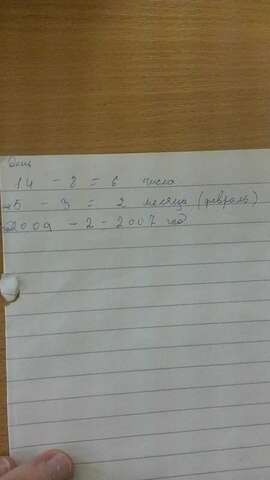 14 - 8 = 6 числа
05 - 3 = 2 месяца (февраль)
2009 - 2 - 2007 год